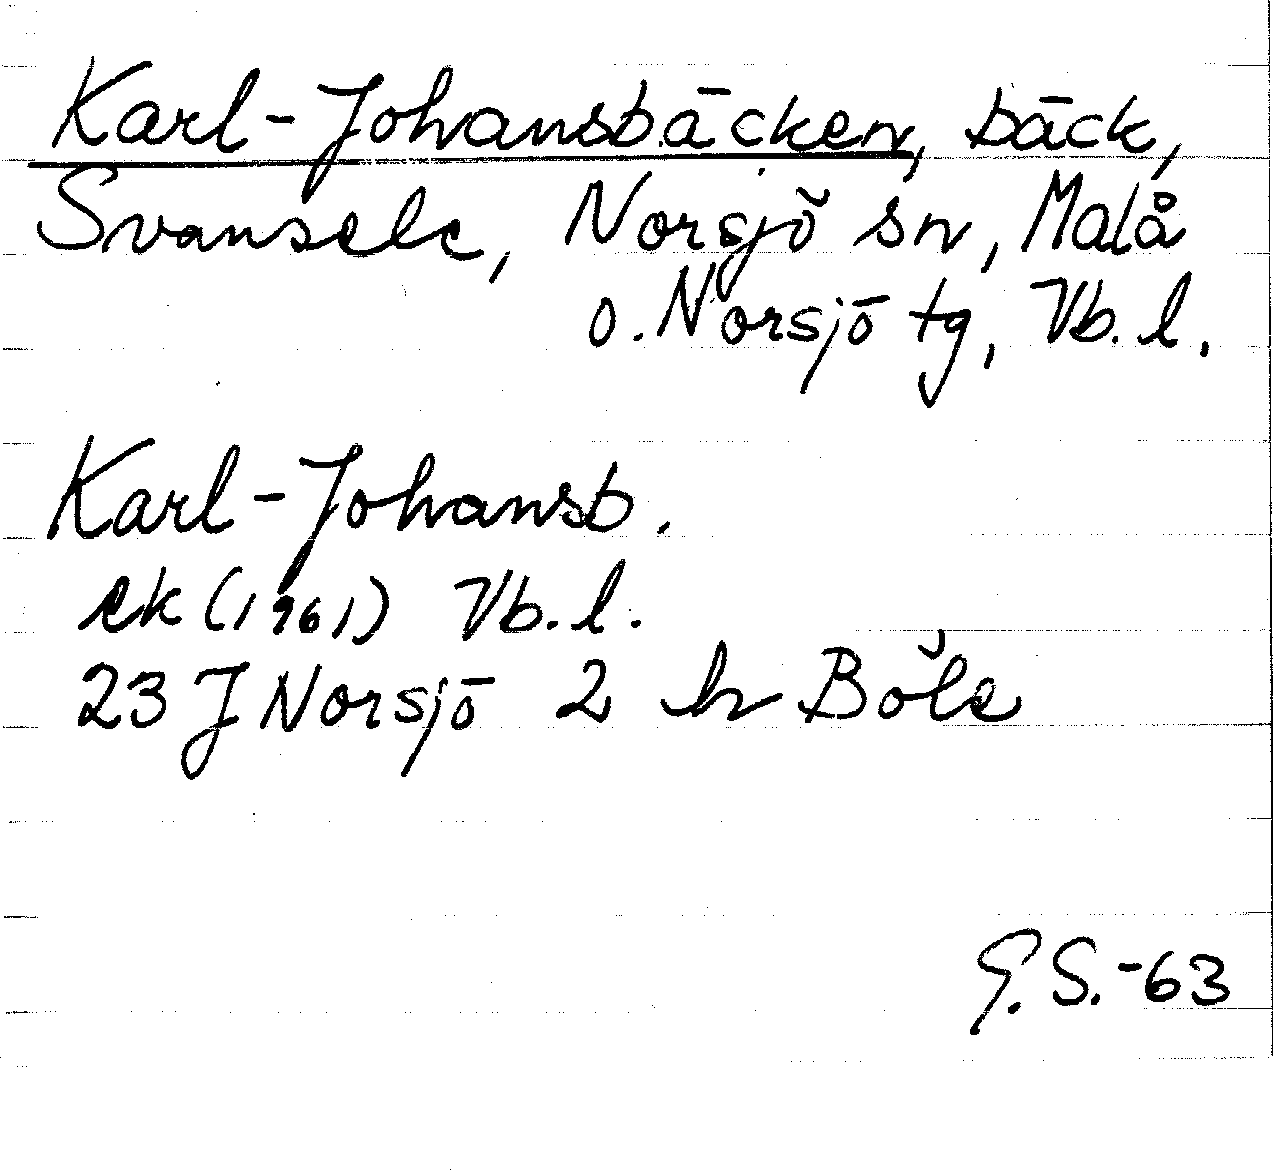 Karl-Johansbäcken, bäck,
Svansele, Norsjö sn, Malå
o. Norsjö tg, Vb. l.
Karl-Johansb.
ek (1961) Vb. l.
23 J Norsjö 2 h Böle
G. S. -63